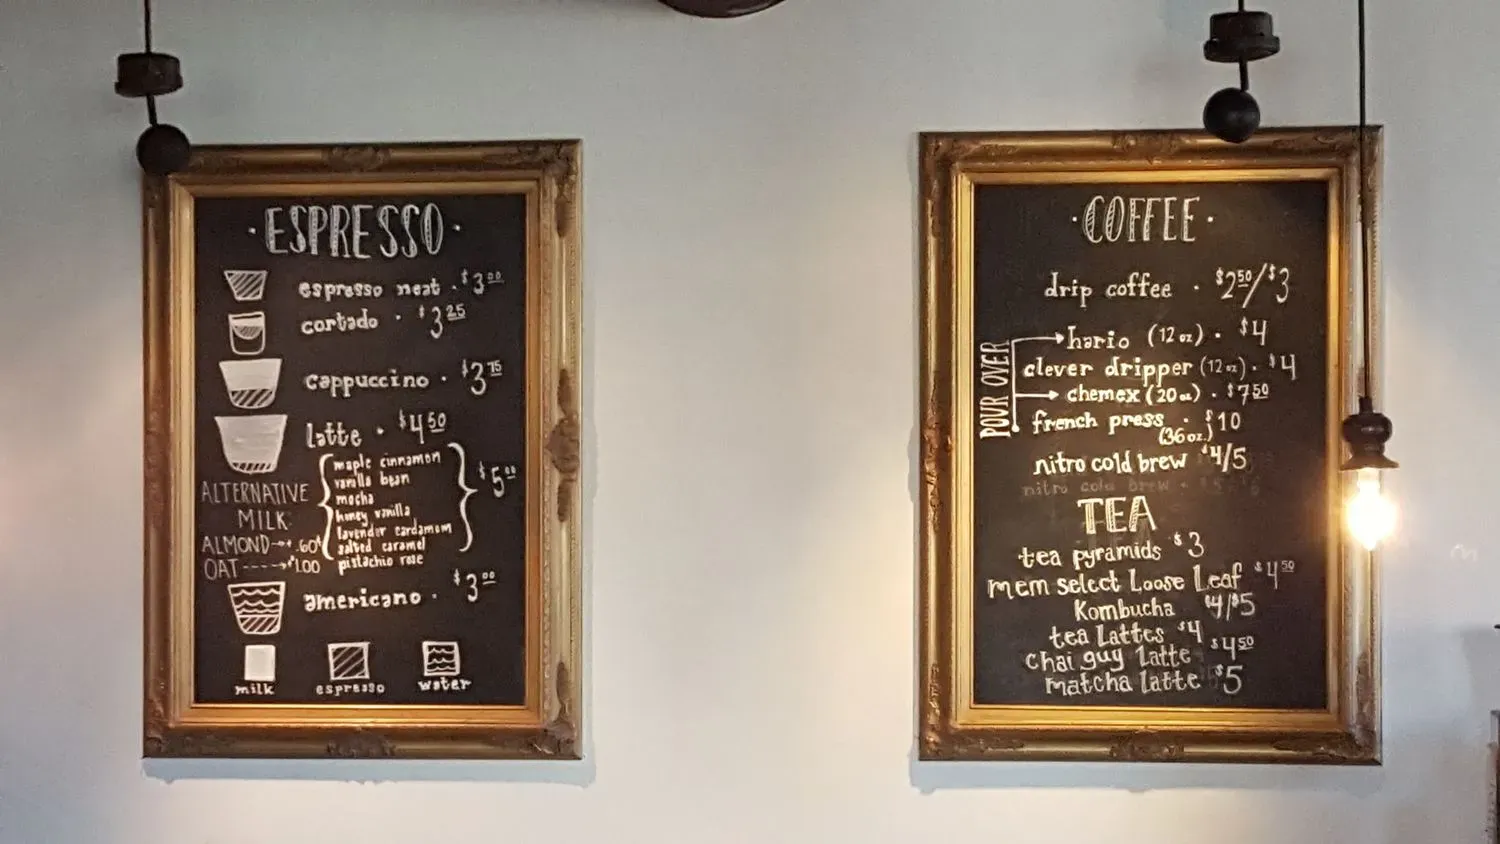 · ESPRESSO ·
espresso neat · $3.00
cortado · $3.25
cappuccino · $3.75
latte · $4.50
maple cinnamon
vanilla bean
mocha
honey vanilla
lavender cardamom
salted caramel
pistachio rose
$5.00
ALTERNATIVE
MILK:
ALMOND → + .60¢
OAT ----→ $1.00
americano · $3.00
milk espresso water
· COFFEE ·
drip coffee · $2.50/$3
POUR OVER
hario (12 oz) · $4
clever dripper (12 oz) · $4
chemex (20 oz) · $7.50
french press · $10
(36 oz.)
nitro cold brew $4/5
nitro cold brew
TEA
tea pyramids $3
mem select Loose Leaf $4.50
Kombucha $4/$5
tea Lattes $4
chai guy latte $4.50
matcha latte $5